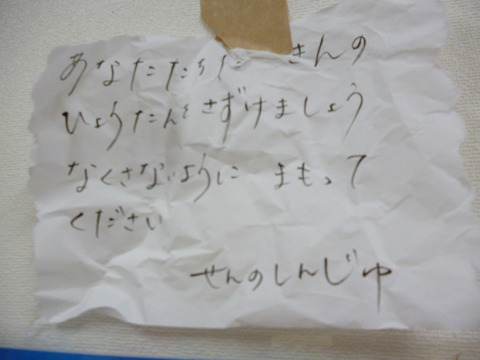 あなたたちに きんの
ひょうたんをさずけましょう
なくさないように まもって
ください
せんのしんじゅ